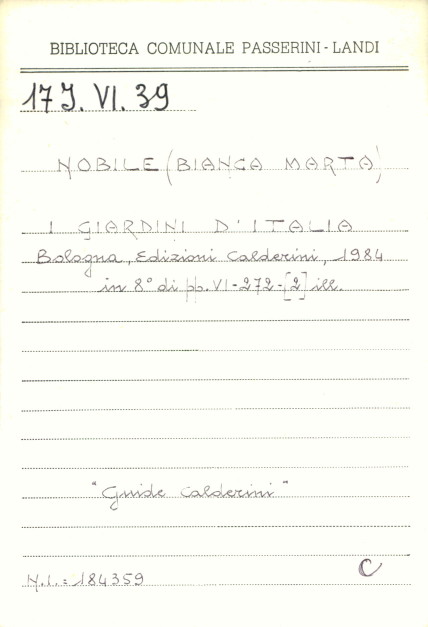 BIBLIOTECA COMUNALE PASSERINI - LANDI
17 J. VI. 39
NOBILE (BIANCA MARTA)
I GIARDINI D'ITALIA
Bologna, Edizioni Calderini, 1984
in 8° di pp. VI-272-[2] ill.
"Guide Calderini"
N.I.: 184359
C